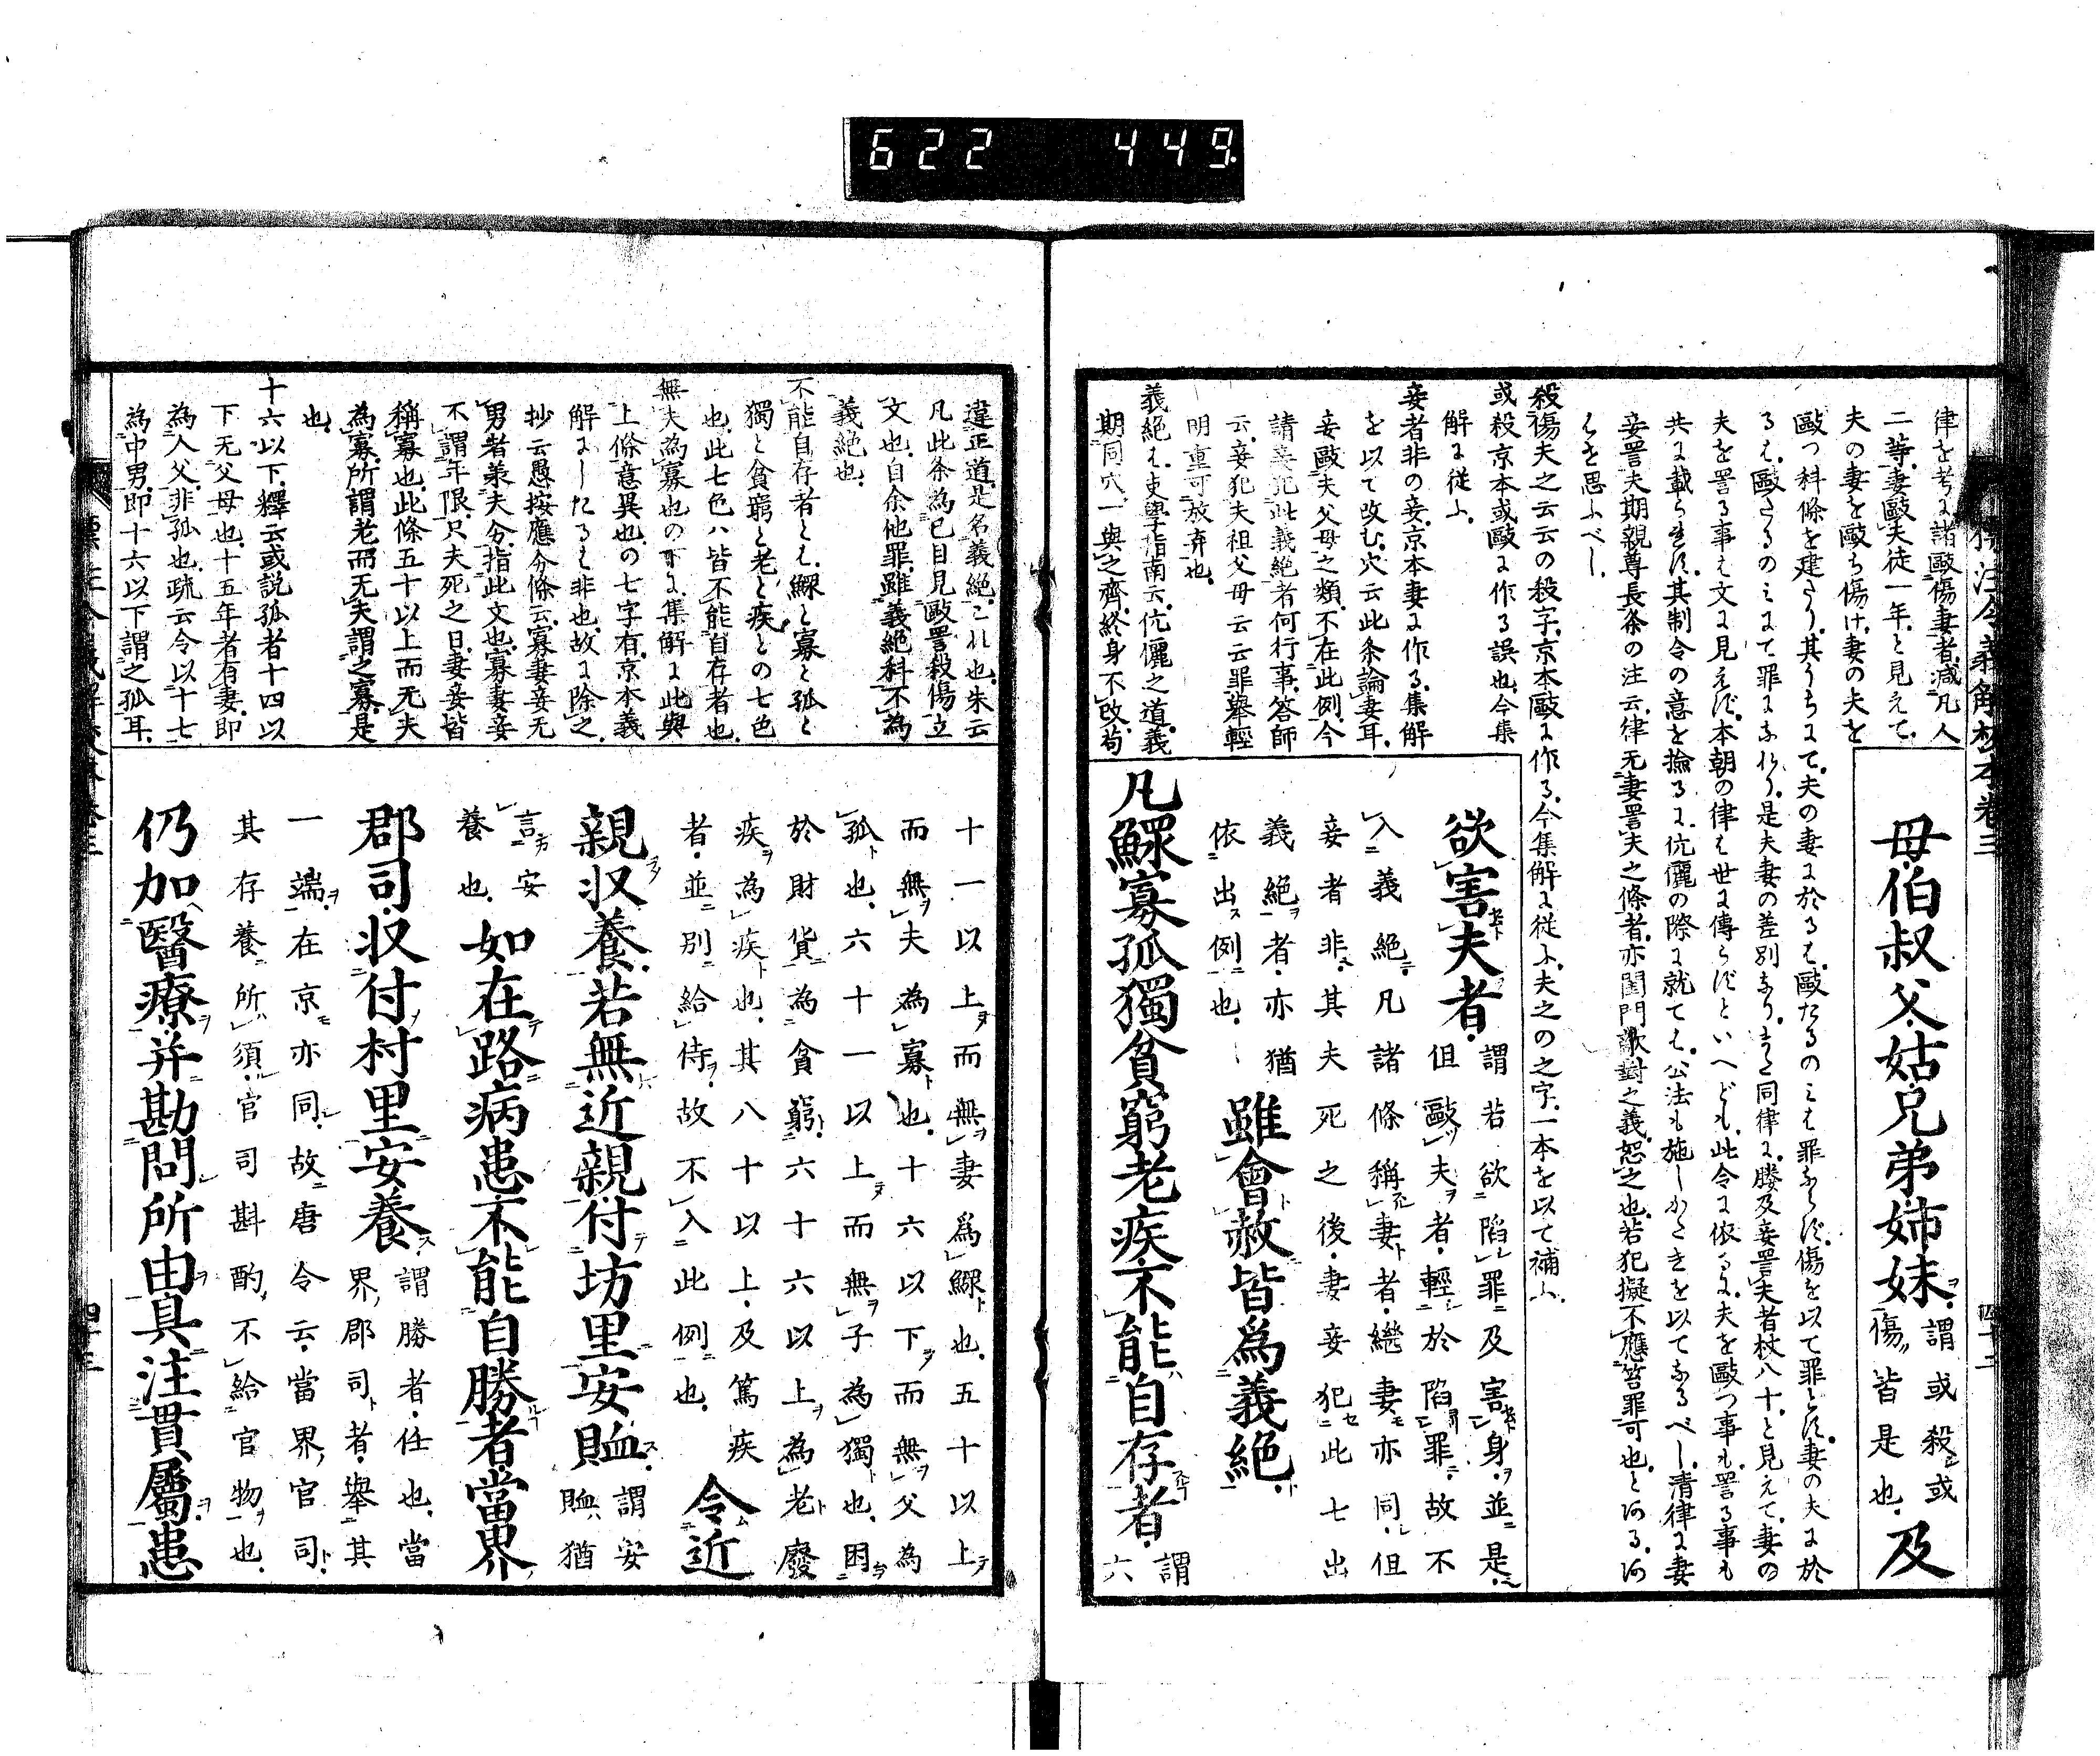 622 449
標注令義解校本卷三
四十二
律を考るに諸毆傷妻者減凡人
二等妻毆夫徒一年と見えて
夫の妻を毆ち傷け妻の夫を
毆つ科條を建たり其うちにて夫の妻に於るは毆たるのみは罪なし傷を以て罪とす妻の夫に於
るは毆たるのみにて罪になれり是夫妻の差別なり
夫を詈る事は文に見えず本朝の律は世に傳らずといへども此令に依るに夫を毆つ事も詈る事も
共に載られず其制令の意を撿るに伉儷の際に就ては公法も施しがたきを以てなるべし清律に妻
妾詈夫期親尊長条の注云律无妻詈夫之條者亦閨門
敵對之義恕之也若犯擬不應笞罪可也とある
を思ふべし
殺傷夫之云云の殺字京本毆に作る今集解に從ふ夫之の之字一本を以て補ふ
或殺京本或毆に作る誤也今集
解に從ふ
妾者非の妾京本妻に作る集解
を以て改む穴云此条論妻耳
妾毆夫父母之類不在此例今
請妾犯此義絕者何行事答師
云妾犯夫祖父母云云罪舉輕
明重可放弃也
義絕は吏學指南云伉儷之道義
期同穴一與之齊終身不改苟
母伯叔父姑兄弟姉妹謂或殺或傷皆是也及
欲害夫者謂若欲陷罪及害身並是
但毆夫者輕於陷罪故不
入義絕凡諸條稱妻者緦妻亦同但
妾者非其夫死之後妻妾犯此七出
義絕者亦猶
依出例也雖會赦皆爲義絕
凡鰥寡孤獨貧窮老疾不能自存者謂六
違正道是名義絕これ也朱云
凡此条為已自見毆詈殺傷立
文也自余他罪雖義絕科不為
義絕也
不能自存者とは鰥と寡と孤と
獨と貪窮と老と疾との七色
也此七色ハ皆不能自存者也
無夫為寡也の下に集解に此與
上條意異也の七字有京本義
解にしたるは非也故に除之
抄云愚按應分條云寡妻妾无
男者兼夫分指此文也寡妻妾
不謂年限只夫死之日妻妾皆
稱寡也此條五十以上而无夫
為寡所謂老而无夫謂之寡是
也
十六以下釋云或說孤者十四以
下无父母也十五年者有妻即
為人父非孤也疏云令以十七
為中男即十六以下謂之孤耳
十一以上而無妻爲鰥也五十以上
而無夫為寡也十六以下而無父為
孤也六十一以上而無子為獨也困
於財貨為貪窮六十六以上為老廢
疾為疾也其八十以上及篤疾
者並別給侍故不入此例也令近
親收養若無近親付坊里安賉謂安賉猶
言安
養也如在路病患不能自勝者當界
郡司收付村里安養謂勝者任也當界郡司者舉其
一端在京亦同故唐令云當界官司
其存養所須官司斟酌不給官物也
仍加醫療并勘問所由具注貫屬患
四十三